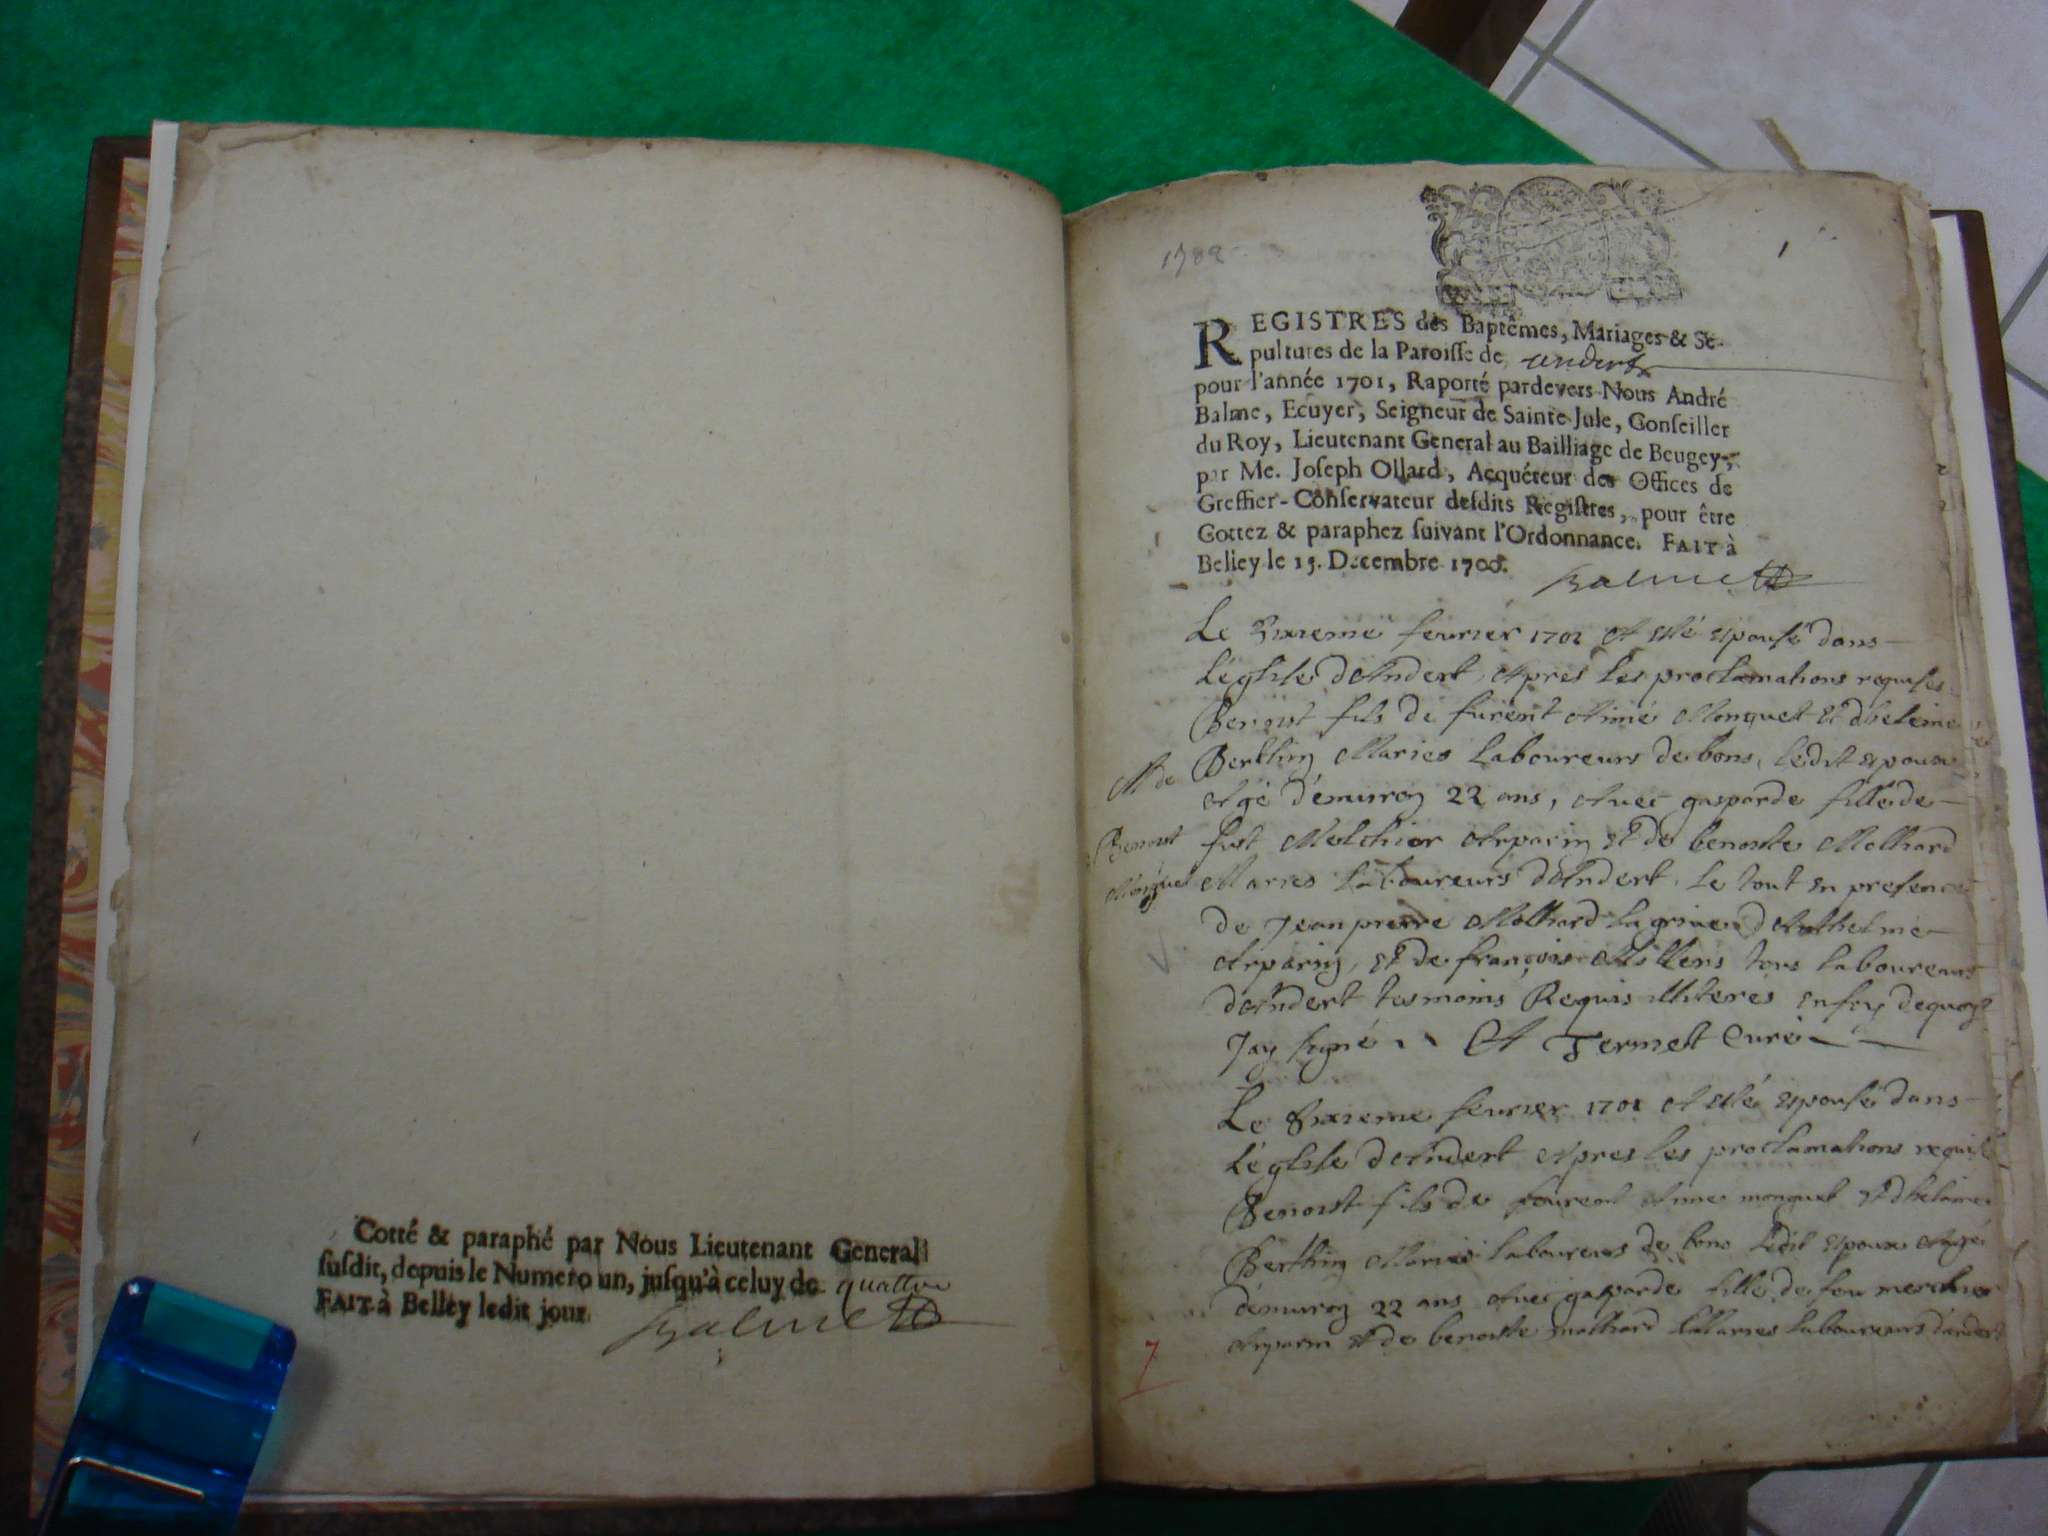 Cotté & paraphé par Nous Lieutenant General
susdit, depuis le Numero un, jusqu'à celuy de quattre
FAIT à Belley ledit jour.
Balme
1
REGISTRES des Baptêmes, Mariages & Se-
pultures de la Paroisse de andert
pour l'année 1701, Raporté pardevers Nous André
Balme, Ecuyer, Seigneur de Sainte Jule, Conseiller
du Roy, Lieutenant General au Bailliage de Beugey,
par Me. Joseph Ollard, Acquéreur des Offices de
Greffier-Conservateur desdits Registres, pour être
Cottez & paraphez suivant l'Ordonnance. FAIT à
Belley le 15. Decembre 1700.
Balme
Le Sixieme feurier 1701 A esté espousé dans
L'église dAndert, Apres les proclamations requises
Benoist fils de furent Aimé Monguet Et dheleine
Berthin Maries Laboureurs de bons, ledit espoux
Agé d'enuiron 22 ans, Auec gasparde fille de
fust Melchior Arparin Et de benoite Molhard
Maries Laboureurs dAndert, Le tout en presence
de Jean pierre Molhard dAnthelme
Arparin, et de françois Millens tous laboureurs
dAndert tesmoins Requis illiteres en foy dequoy
Jay signé A Termet Curé
M de
Benoist
Monguet
Le Sixieme feurier 1701 A esté espousé dans
L'église dAndert Apres les proclamations requises
Benoist fils de feurent Aime monguet Et dheleine
Berthin Maries laboureurs de bons ledit espoux Agé
d'enuiron 22 ans Auec gasparde fille de feu merchior
Arparin Et de benoite molhard Maries laboureurs dandert
7